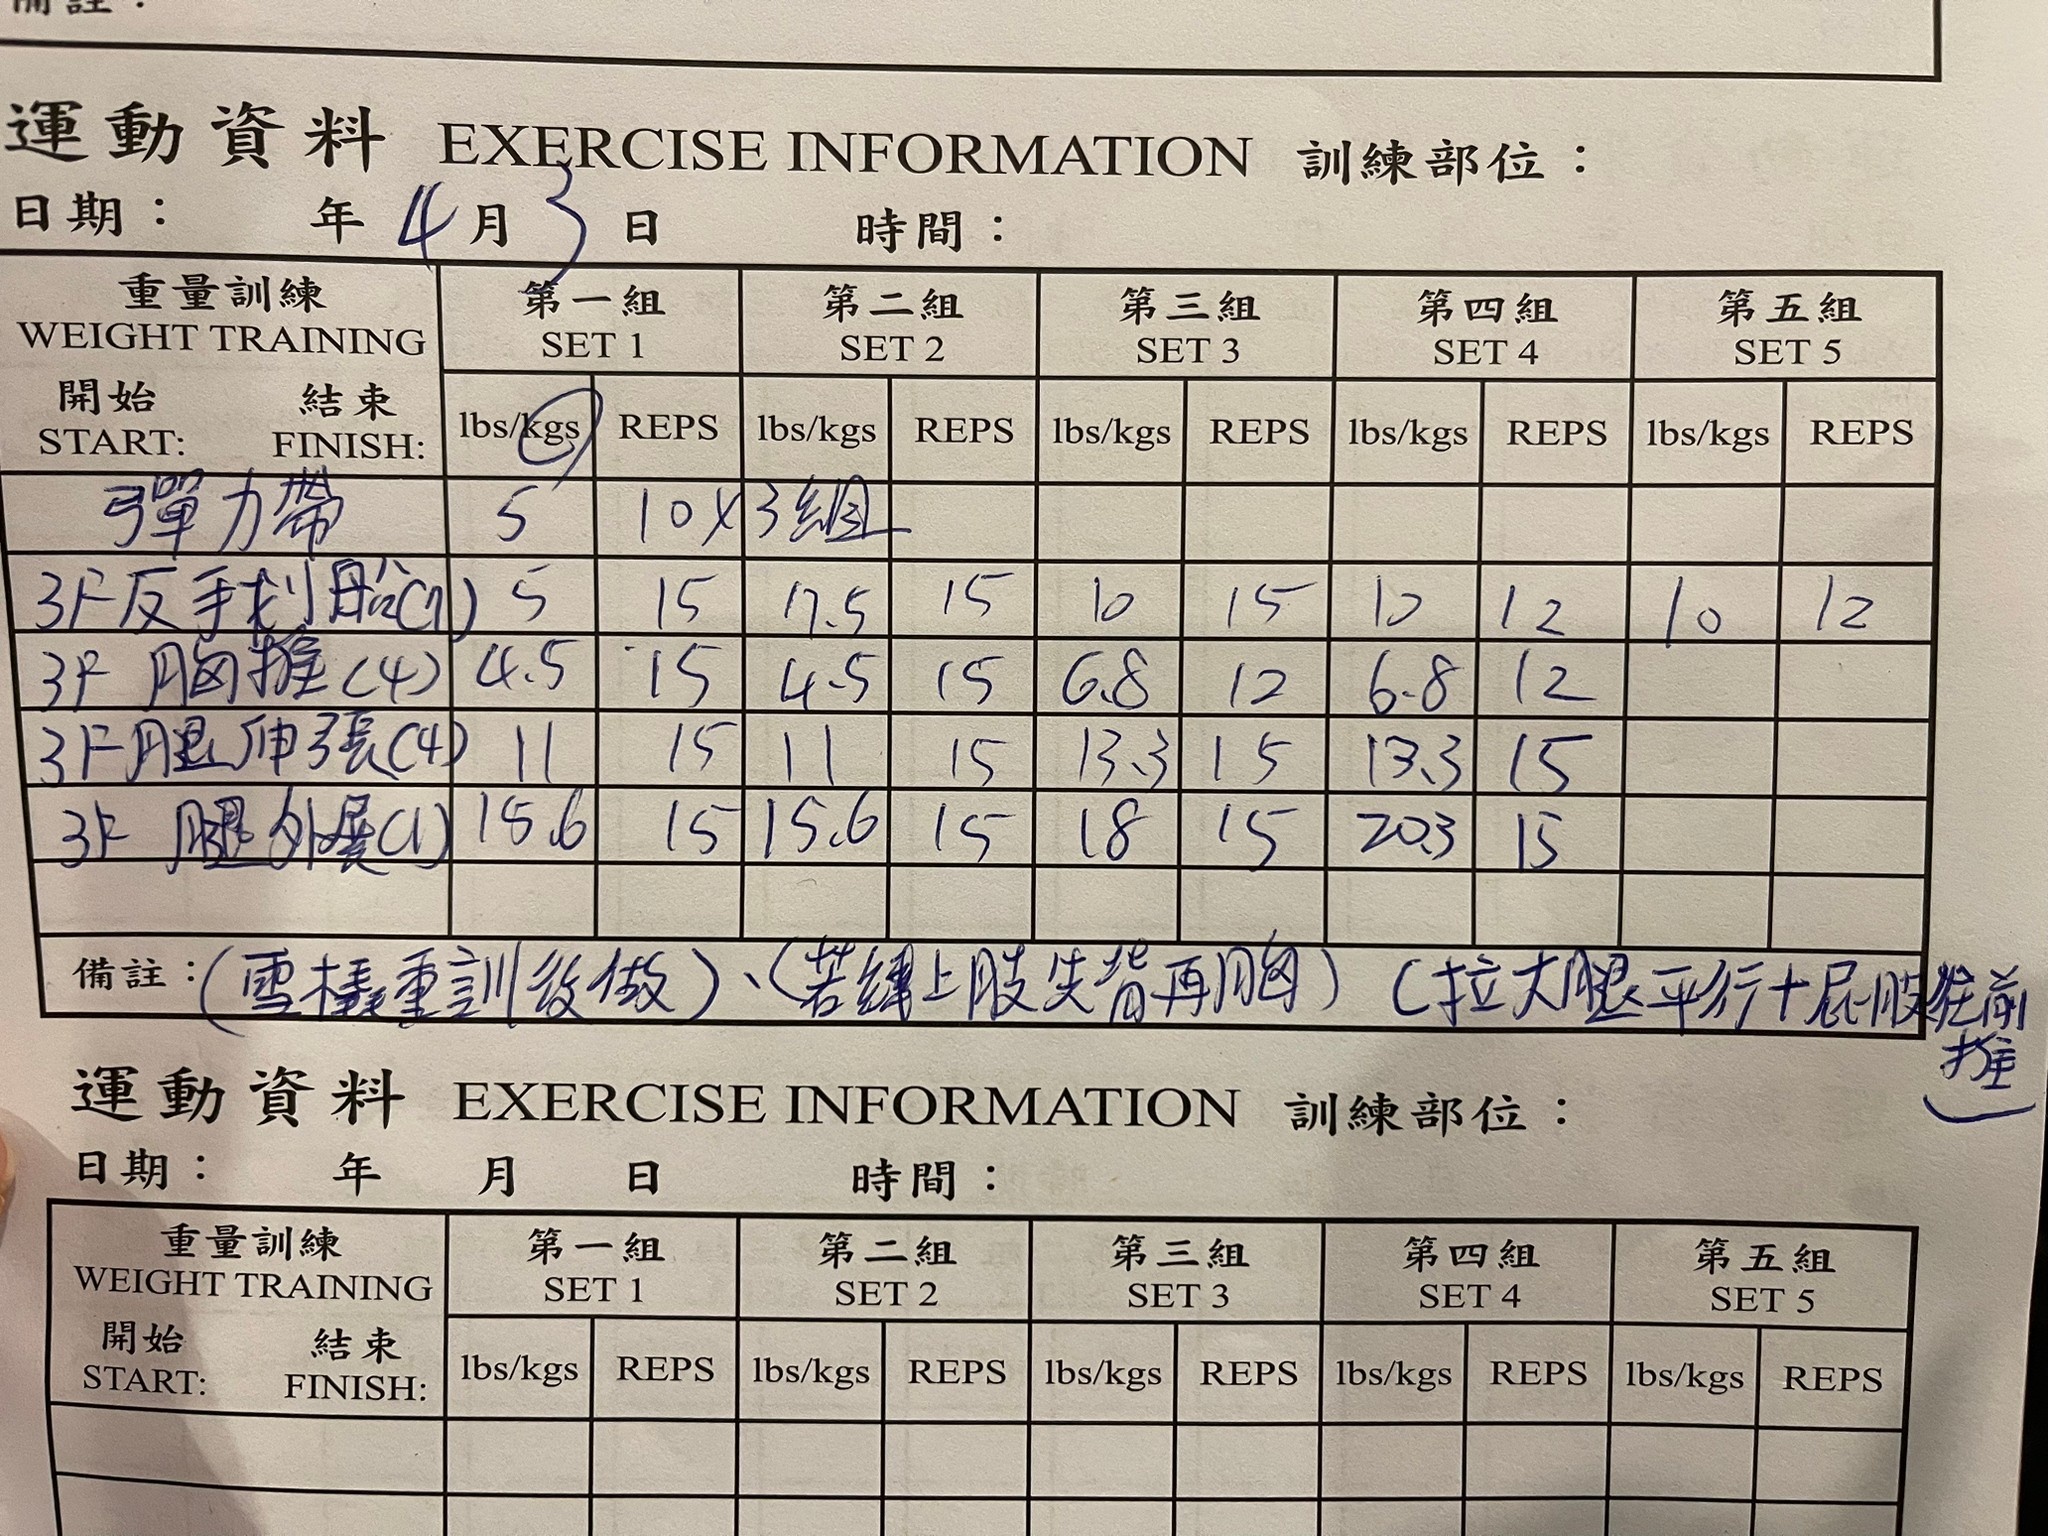 備註：
運動資料 EXERCISE INFORMATION 訓練部位：
日期： 年 4 月 3 日 時間：
重量訓練 WEIGHT TRAINING 第一組 SET 1 第二組 SET 2 第三組 SET 3 第四組 SET 4 第五組 SET 5
開始 START: 結束 FINISH: lbs/kgs REPS lbs/kgs REPS lbs/kgs REPS lbs/kgs REPS lbs/kgs REPS
彈力帶 5 10×3組
3F反手划船(7) 5 15 7.5 15 10 15 10 12 10 12
3F 胸推(4) 4.5 15 4.5 15 6.8 12 6.8 12
3F腿伸張(4) 11 15 11 15 13.3 15 13.3 15
3F 腿外展(1) 15.6 15 15.6 15 18 15 20.3 15
備註：(雪橇重訓後做)、(若練上肢先背再胸) (拉大腿平行+屁股往前
推)
運動資料 EXERCISE INFORMATION 訓練部位：
日期： 年 月 日 時間：
重量訓練 WEIGHT TRAINING 第一組 SET 1 第二組 SET 2 第三組 SET 3 第四組 SET 4 第五組 SET 5
開始 START: 結束 FINISH: lbs/kgs REPS lbs/kgs REPS lbs/kgs REPS lbs/kgs REPS lbs/kgs REPS